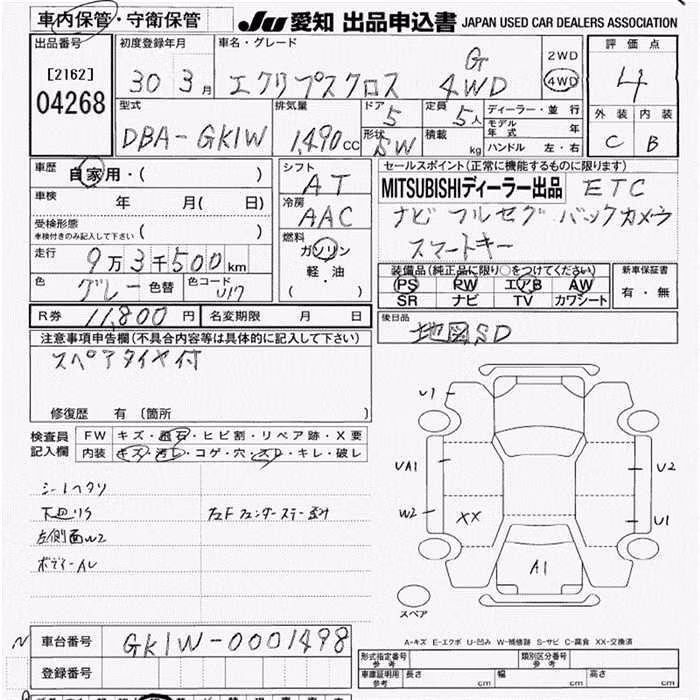 車内保管・守衛保管
Ju 愛知 出品申込書 JAPAN USED CAR DEALERS ASSOCIATION
出品番号 初度登録年月 車名・グレード 評価点
[2162] 04268 30 3月 エクリプスクロス G 4WD 2WD 4WD 4
型式 排気量 ドア 定員 ディーラー・並行 外装 内装
DBA-GK1W 1,490cc 5 5人 モデル年式 年 C B
形状 SW 積載 kg ハンドル 左・右
車歴 自家用・( ) シフト AT セールスポイント(正常に機能するものに限ります)
車検 年 月( 日) 冷房 AAC MITSUBISHIディーラー出品 ETC
受検形態 車検付きのみ記入して下さい ( ) ナビ フルセグ バックカメラ
走行 9万3千500km 燃料 ガソリン スマートキー
色 グレー 色替 色コード U17 軽・油 ( ) 装備品(純正品に限り○をつけてください) 新車保証書
PS PW エアB AW 有・無
SR ナビ TV カワシート
R券 11,800円 名変期限 月 日 後日品 地図SD
注意事項申告欄(不具合内容等は具体的に記入して下さい)
スペアタイヤ付
修復歴 有 (箇所 )
検査員記入欄 FW キズ・飛石・ヒビ割・リペア跡・X要
内装 キズ・汚レ・コゲ・穴・スレ・キレ・破レ
シートヘタリ
下廻リS
左側面W2
U1
UA1
U2
W2
XX
U1
A1
スペア
A-キズ E-エクボ U-凹み W-補修跡 S-サビ C-腐食 XX-交換済
車台番号 GK1W-0001498
登録番号
形式指定番号 参考 類別区分番号 参考
車庫証明用 参考 長さ cm 幅 cm 高さ cm